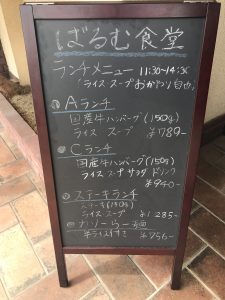 ばるむ食堂
ランチメニュー 11:30~14:30
(ライス スープ おかわり自由)
Aランチ
国産牛ハンバーグ(150g)
ライス スープ ¥789-
Cランチ
国産牛ハンバーグ(150g)
ライス スープ サラダ ドリンク
¥940-
ステーキランチ
ステーキ(150g)
ライス スープ ¥1285-
半ライス付き ¥756-